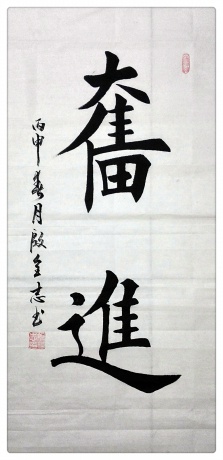 奮進
丙申春月殷金志书